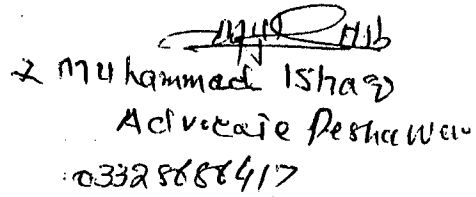 2 Muhammad Ishaq
Advocate Peshawar
03328686417